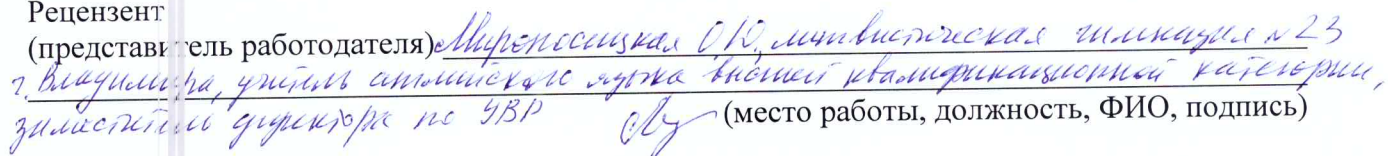 Рецензент
(представитель работодателя) Мироносицкая О.Ю., лингвистическая гимназия №23
г. Владимира, учитель английского языка высшей квалификационной категории,
заместитель директора по УВР (место работы, должность, ФИО, подпись)